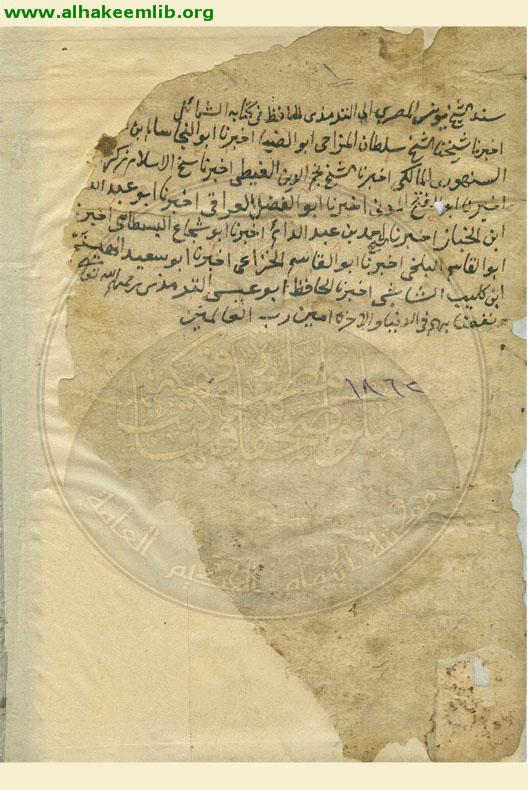 www.alhakeemlib.org
١
سند الشيخ يونس المصري الي الترمذي الحافظ في كتابه الشمائل
اخبرنا شيخنا الشيخ سلطان المزاحي ابو الضياء اخبرنا ابو النجا سالم بن
السنهوري المالكي اخبرنا الشيخ نجم الدين الغيطي اخبرنا شيخ الاسلام زكريا
اخبرنا ابو الفتح المدني اخبرنا ابو الفضل العراقي اخبرنا ابو عبد الله
ابن الخباز اخبرنا احمد بن عبد الدائم اخبرنا ابو شجاع البسطامي اخبرنا
ابو القاسم البلخي اخبرنا ابو القاسم الخزاعي اخبرنا ابو سعيد الهيثم
ابن كليب الشاشي اخبرنا الحافظ ابو عيسى الترمذي رحمهم الله تعالى
ونفعنا بهم في الدنيا والاخرة امين رب العالمين
١٨٦٢
يتلو صحفا مطهرة فيها كتب قيمة
مكتبة الامام الحكيم العامة